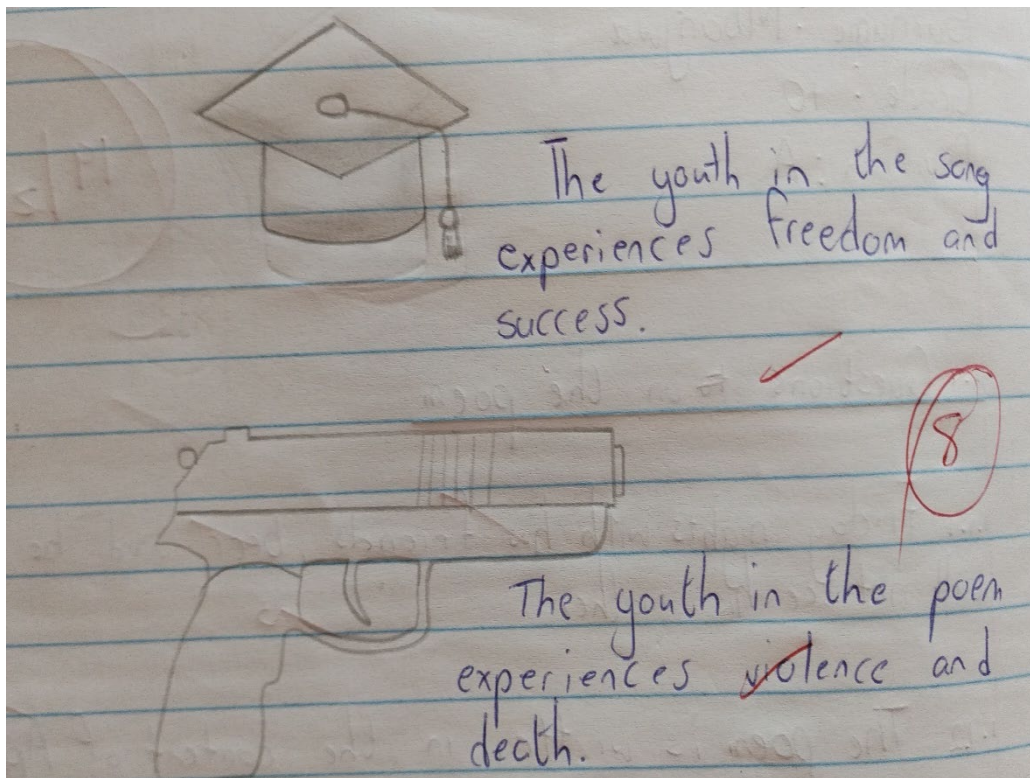 The youth in the song
experiences freedom and
success.
8
The youth in the poem
experiences violence and
death.